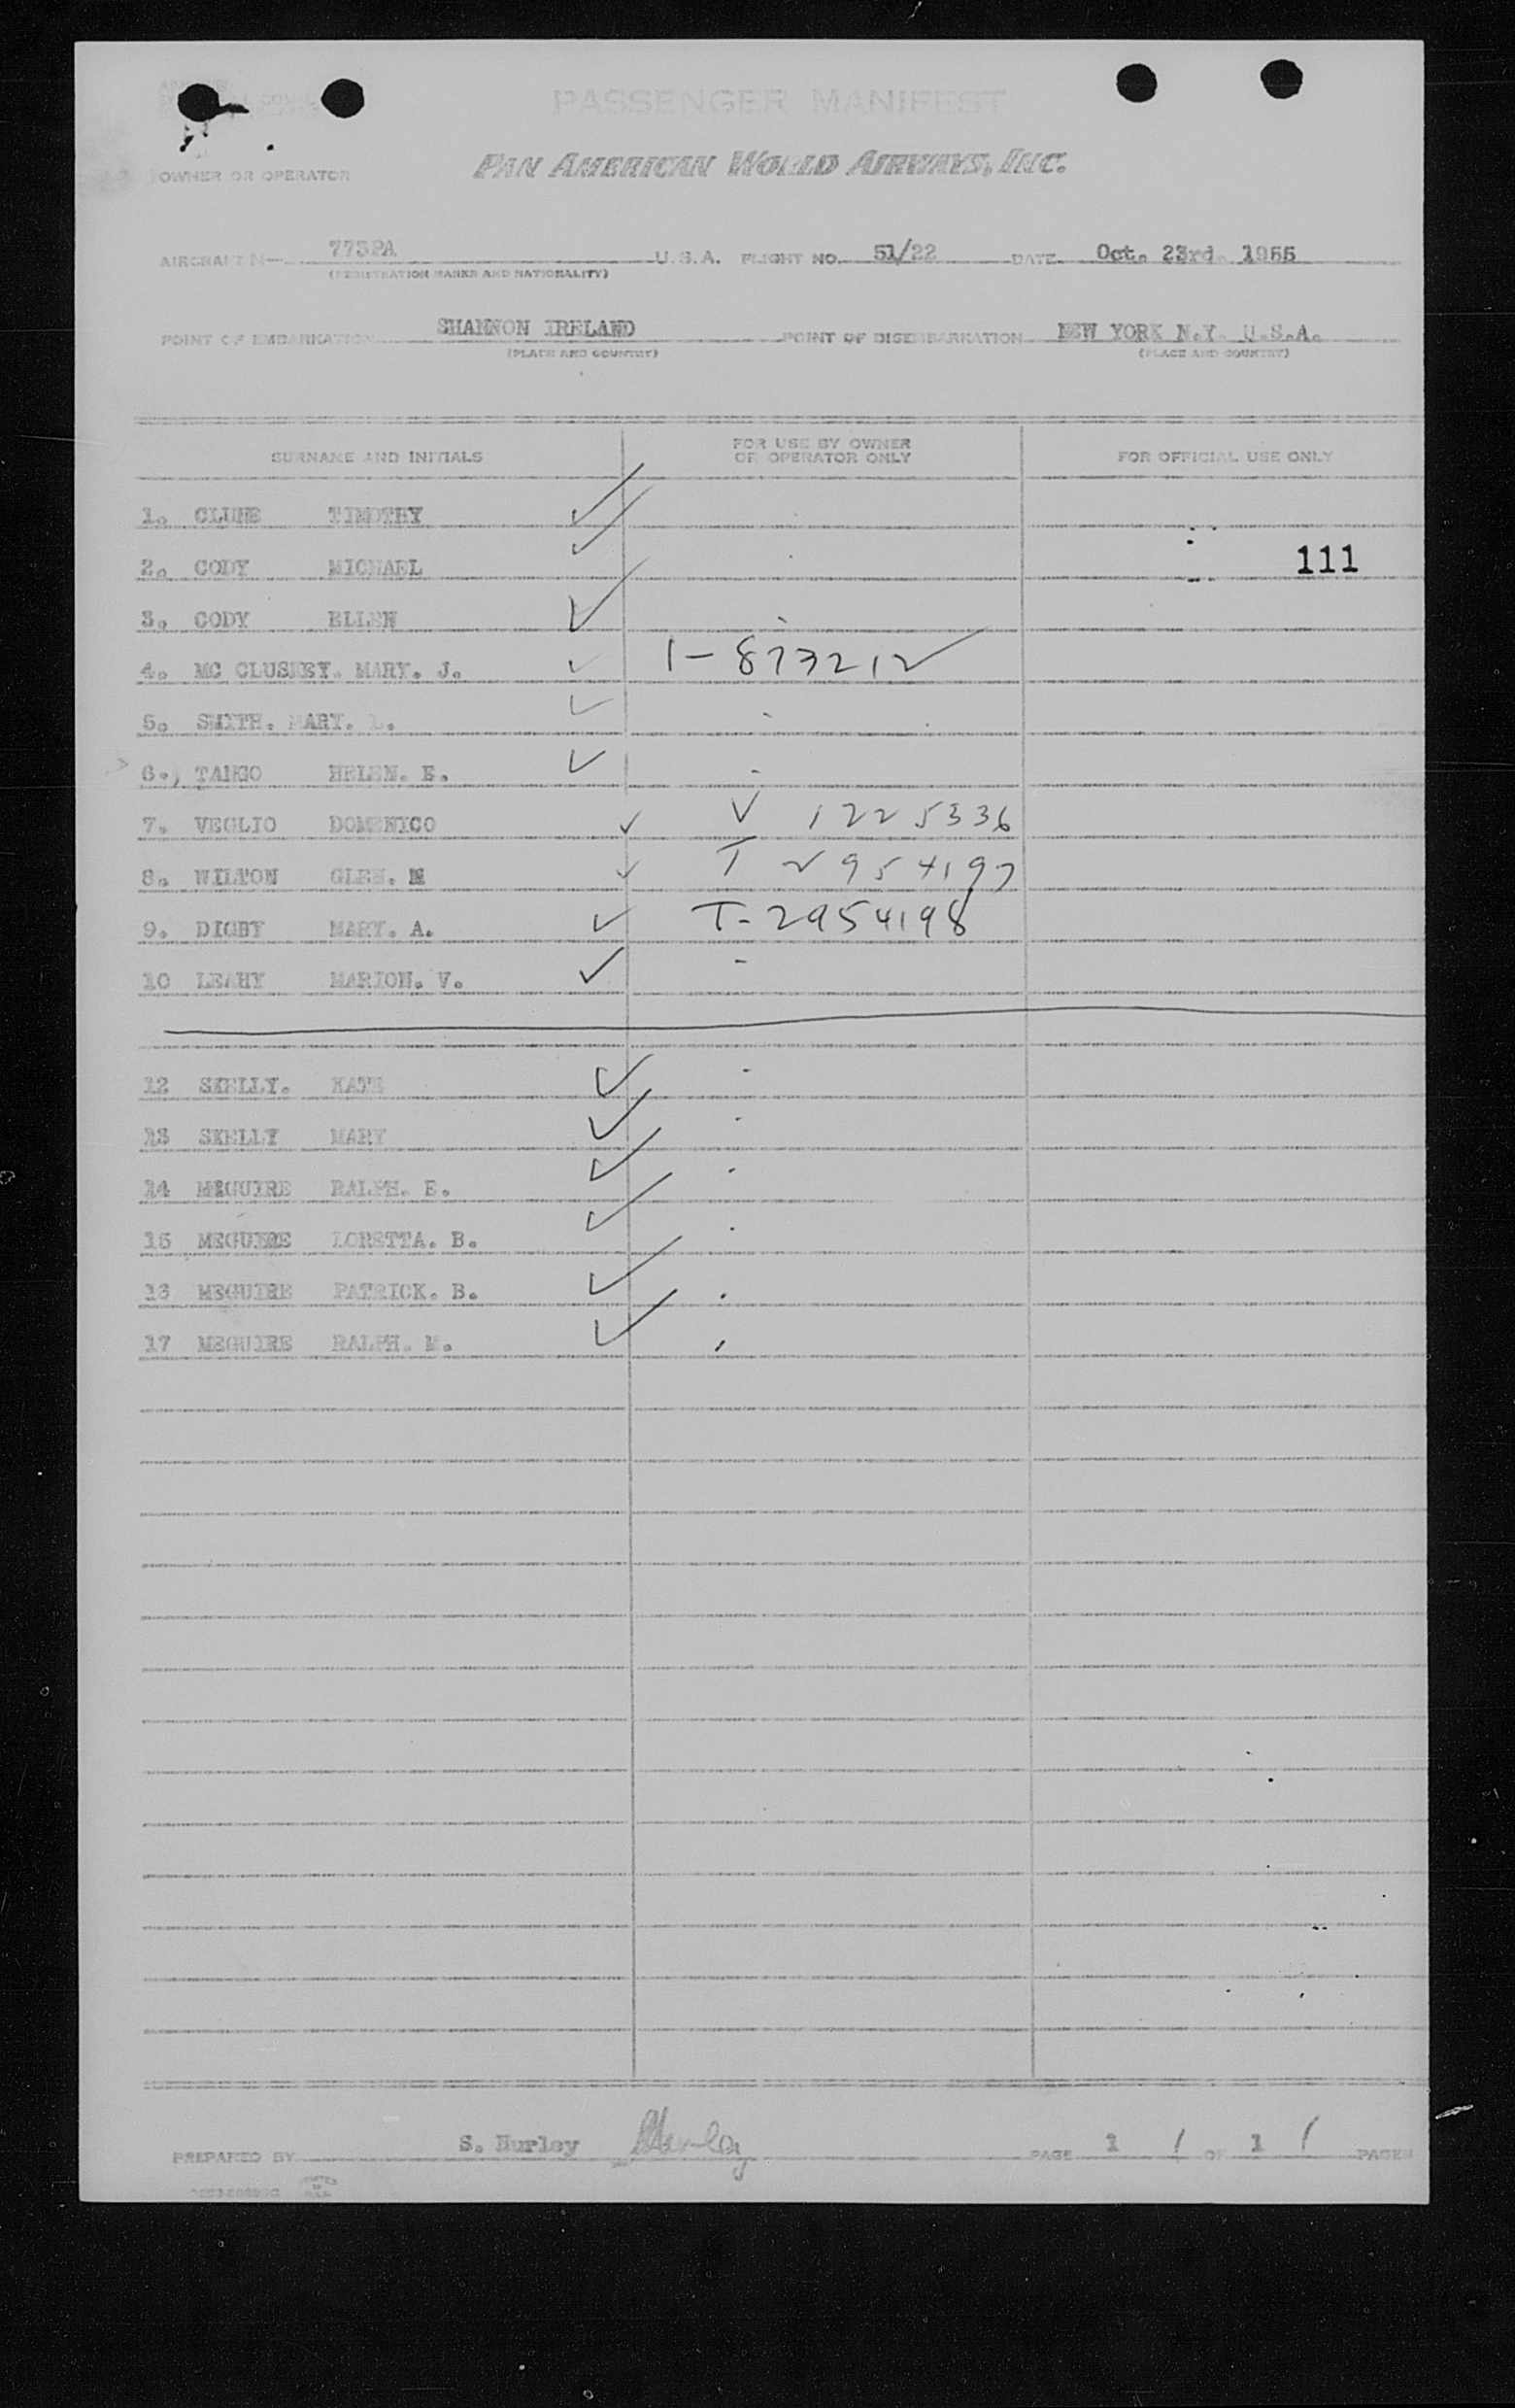 PASSENGER MANIFEST
OWNER OR OPERATOR PAN AMERICAN WORLD AIRWAYS, INC.
AIRCRAFT N— 773PA U.S.A. FLIGHT NO. 51/22 DATE Oct. 23rd 1955
(REGISTRATION MARKS AND NATIONALITY)
POINT OF EMBARKATION SHANNON IRELAND POINT OF DISEMBARKATION NEW YORK N.Y. U.S.A.
(PLACE AND COUNTRY) (PLACE AND COUNTRY)
SURNAME AND INITIALS FOR USE BY OWNER OR OPERATOR ONLY FOR OFFICIAL USE ONLY
1. CLUNE TIMOTHY
2. CODY MICHAEL 111
3. CODY ELLEN
4. MC CLUSKEY. MARY. J. 1-873212
5. SMITH. MARY.
6. HELEN. E.
7. VEGLIO DOMENICO V 1225336
8. WILTON GLEN. M T 2954197
9. DIGBY MARY. A. T-2954198
10 LEAHY MARION. V.
12 SKELLY. KATE
13 SKELLY MARY
14 MEGUIRE RALPH. E.
15 MEGUIRE LORETTA. B.
16 MEGUIRE PATRICK. B.
17 MEGUIRE RALPH. M.
PREPARED BY S. Hurley SHurley PAGE 1 / OF 1 / PAGES